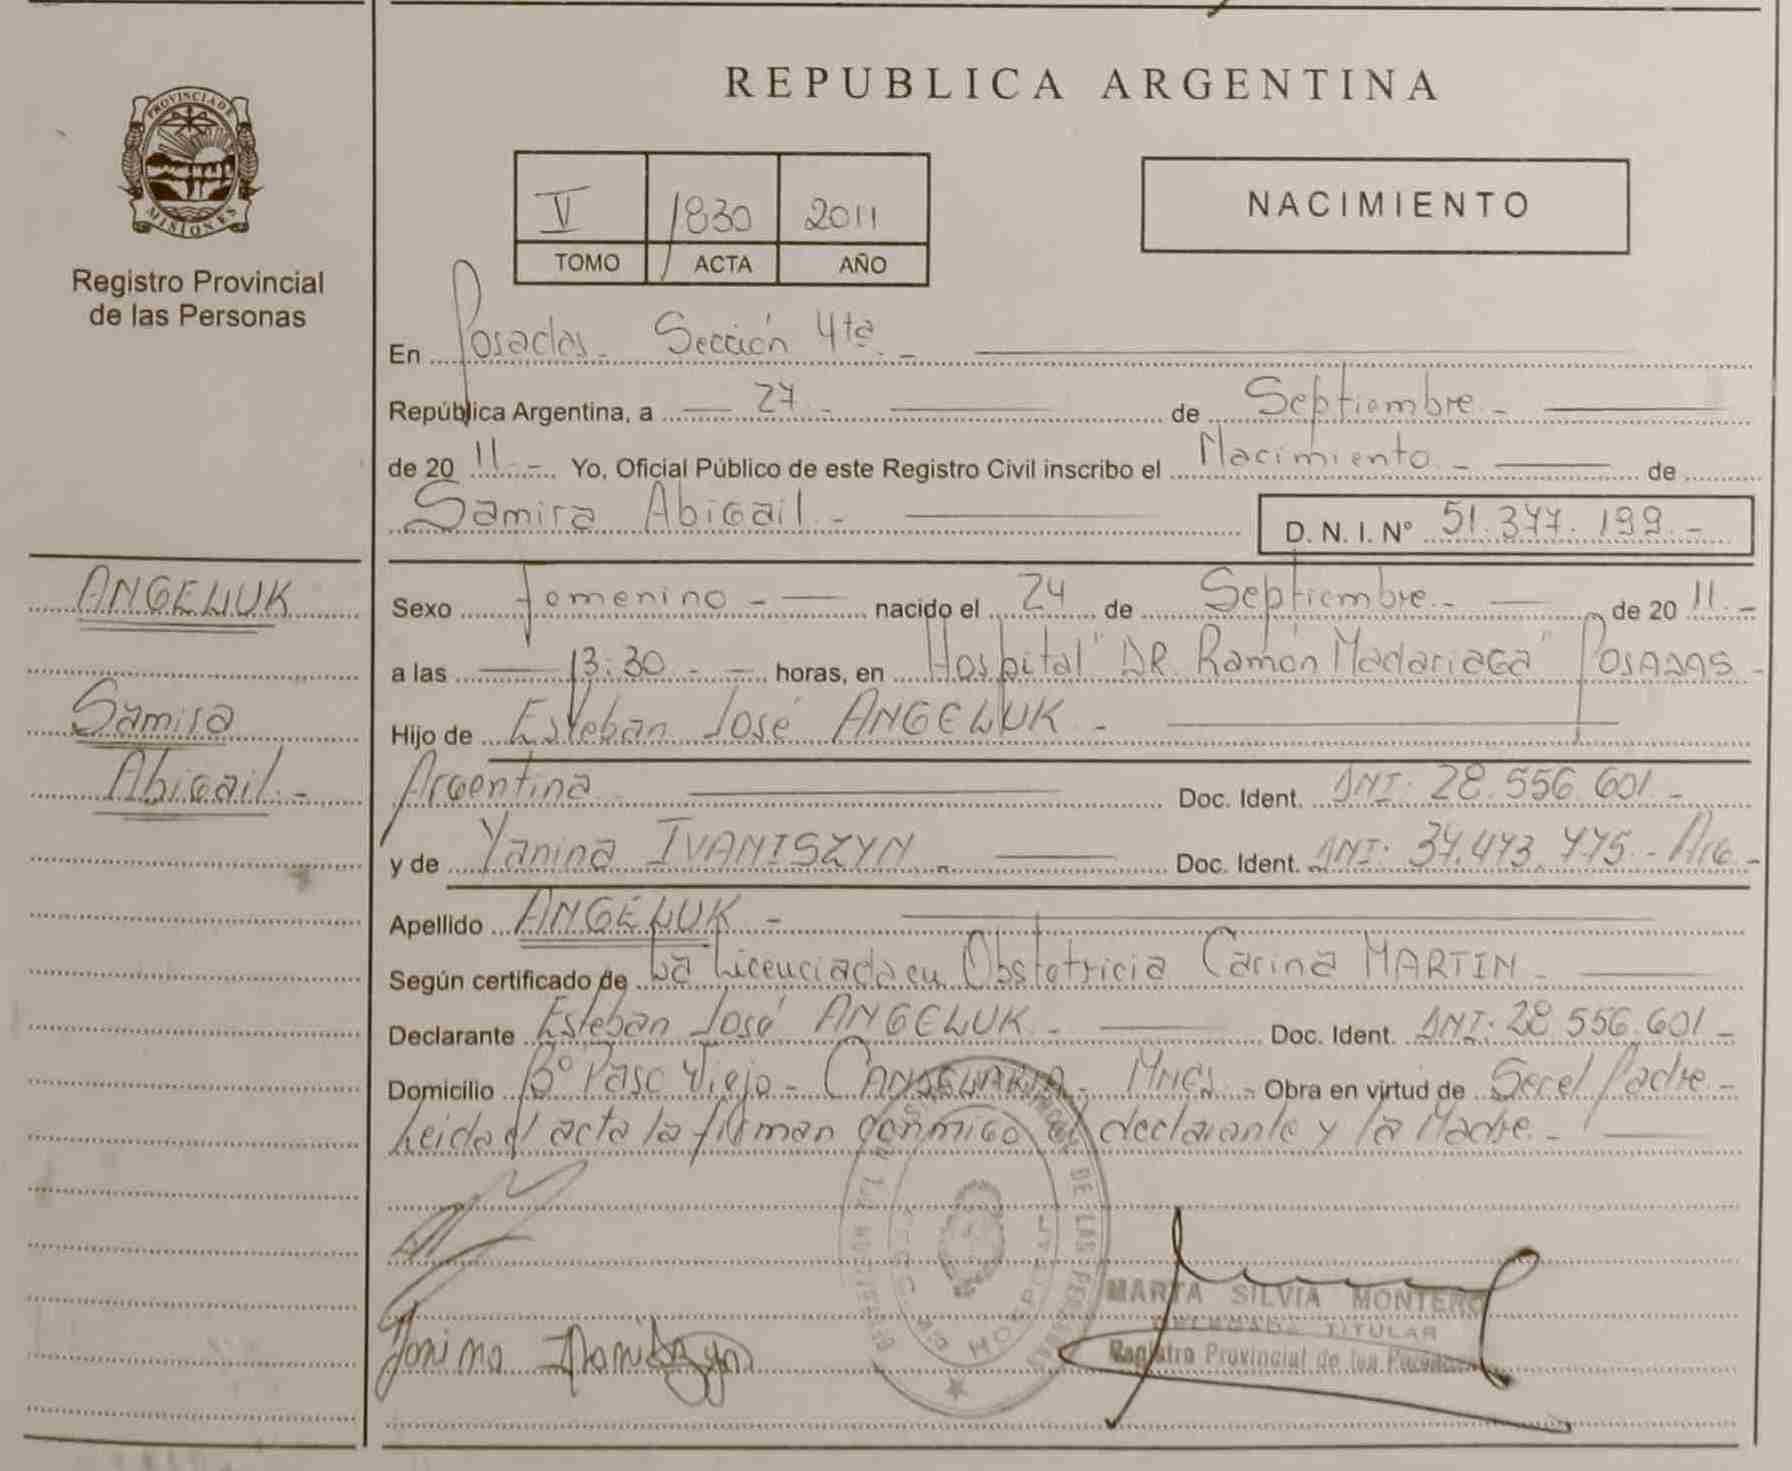 REPUBLICA ARGENTINA
PROVINCIA DE
MISIONES
Registro Provincial
de las Personas
V 1830 2011
TOMO ACTA AÑO
NACIMIENTO
En Posadas - Sección 4ta. -
República Argentina, a 27 - de Septiembre -
de 20 11 - Yo, Oficial Público de este Registro Civil inscribo el Nacimiento - de
Samira Abigail -
D. N. I. Nº 51.377.199.-
ANGELIUK
Samira
Abigail. -
Sexo femenino - nacido el 24 de Septiembre - de 20 11. -
a las 13:30 - horas, en Hospital "DR. Ramón Madariaga" POSADAS -
Hijo de Esteban José ANGELIUK -
Argentina Doc. Ident. DNI: 28.556.601 -
y de Yanina IVANISZYN - Doc. Ident. DNI: 34.473.775 - Arg -
Apellido ANGELIUK -
Según certificado de La Licenciada en Obstetricia Carina MARTIN -
Declarante Esteban José ANGELIUK - Doc. Ident. DNI: 28.556.601 -
Domicilio Bº Paso Viejo - CANDELARIA - Mnes - Obra en virtud de Ser el Padre -
Leida el acta la firman conmigo el declarante y la Madre -
DE LAS PERSONAS
MARTA SILVIA MONTERO
DELEGADA TITULAR
Registro Provincial de las Personas